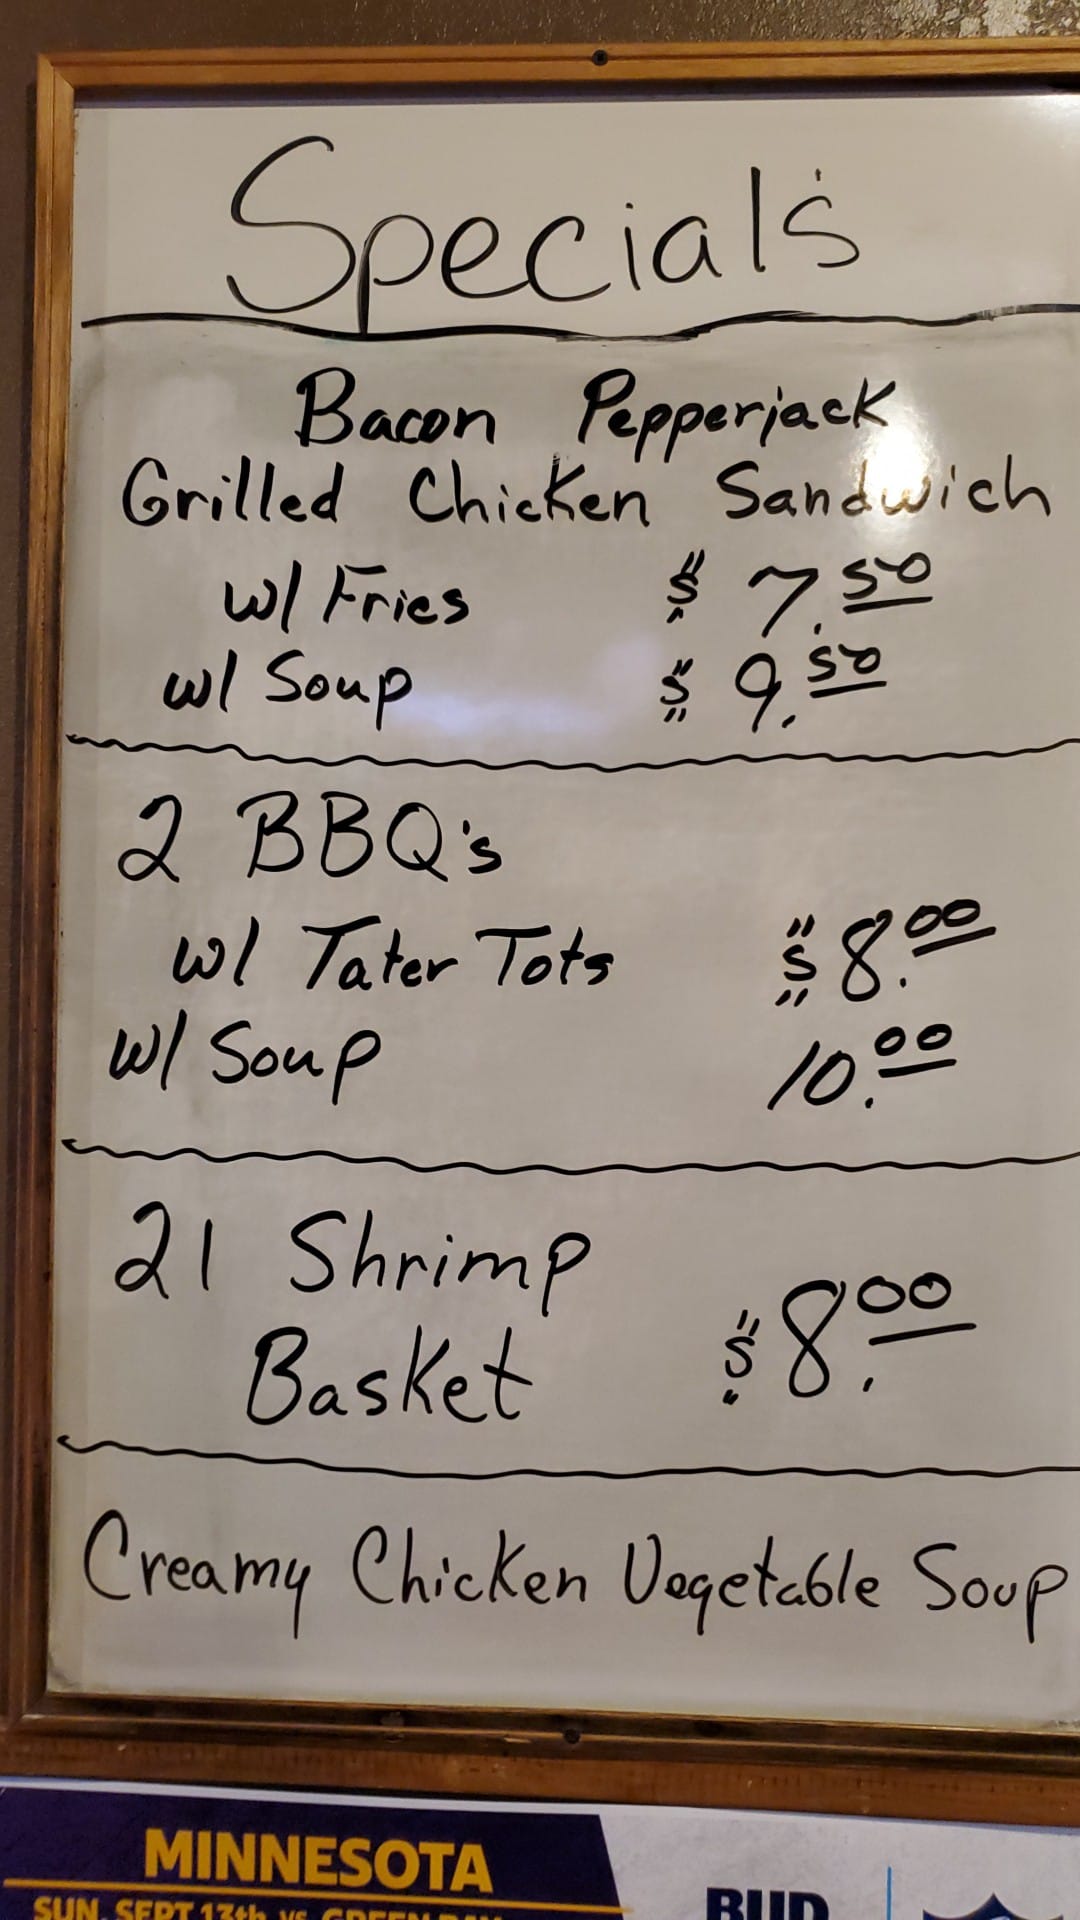 Specials
Bacon Pepperjack
Grilled Chicken Sandwich
w/ Fries $ 7.50
w/ Soup $ 9.50
2 BBQ's
w/ Tater Tots $8.00
w/ Soup 10.00
21 Shrimp
Basket $8.00
Creamy Chicken Vegetable Soup
MINNESOTA
SUN. SEPT 13th vs. GREEN BAY
BUD